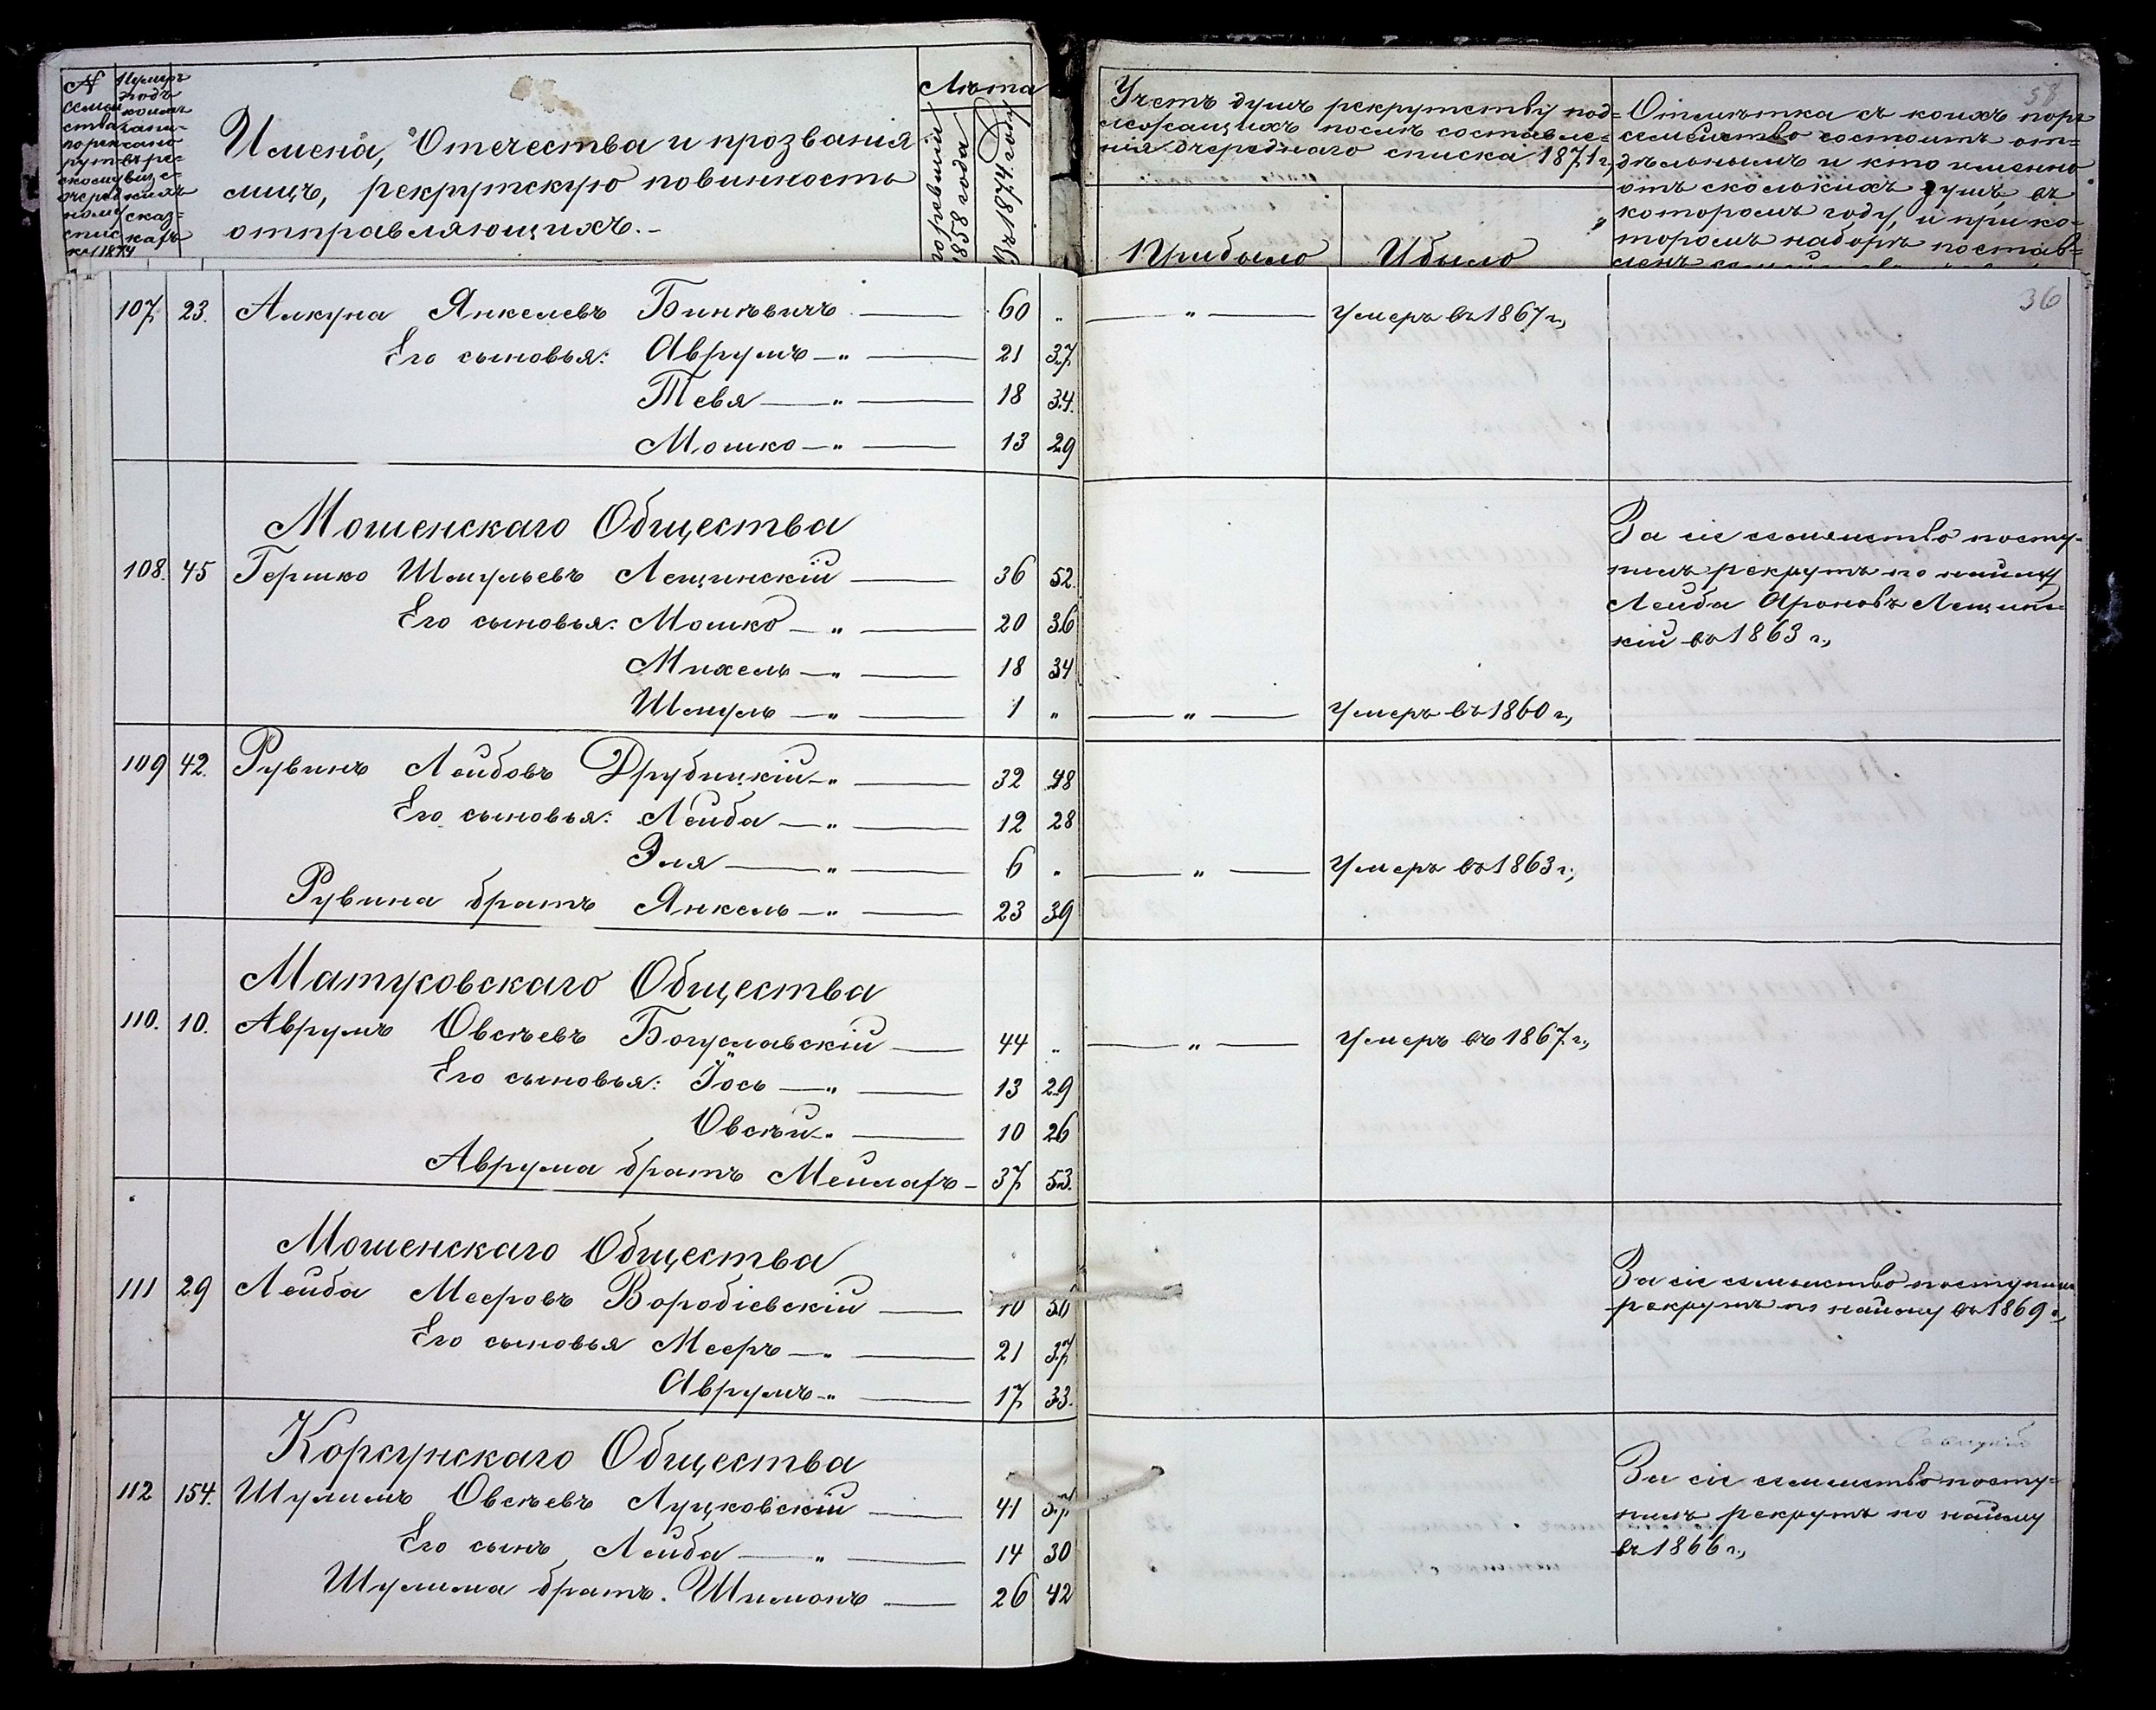 №
семей
ства
по рек
рутс
скому
очеред
ному
спис
ку 1874
Нумеръ
подъ
коимъ
запи-
сано
въ ре-
виз.
скихъ
сказ-
кахъ
Имена, Отечества и прозванія
лицъ, рекрутскую повинность
отправляющихъ.-
Лѣта
по ревизіи
1858 года
Къ 1874 году
Учетъ душъ рекрутству под-
лежащихъ послѣ составле-
нія очереднаго списка 1871 г.,
Прибыло
Убыло
58
Отмѣтка съ коихъ поръ
семейство состоитъ от-
дѣльнымъ и кто именно
отъ сколькихъ душъ, въ
которомъ году, и при ко-
торомъ наборѣ постав-
36
107 23. Алкуна Янкелевъ Бинѣвичъ 60 " " Умеръ въ 1867 г.,
Его сыновья: Аврумъ — " 21 37
Тевя — " 18 34.
Мошко — " 13 29
Мошенскаго Общества
108. 45 Гершко Шмульевъ Лещинскій 36 52.
Его сыновья: Мошко — " 20 36
Михель — " 18 34
Шмуль — " 1 " " Умеръ въ 1860 г.,
За сіе семейство посту-
пилъ рекрутъ по найму
Лейба Ароновъ Лещинс-
кій въ 1863 г.,
109 42. Рувинъ Лейбовъ Друбицкій — " 32 48
Его сыновья: Лейба — " 12 28
Эля — " 6 " " Умеръ въ 1863 г.,
Рувина братъ Янкель — " 23 39
Матусовскаго Общества
110. 10. Аврумъ Овсѣевъ Богуславскій 44 " " Умеръ въ 1867 г.,
Его сыновья: Іось — " 13 29
Овсѣй — " 10 26
Аврума братъ Мейлахъ — 37 53.
Мошенскаго Общества
111 29 Лейба Мееровъ Воробіевскій 40 56
Его сыновья Мееръ — " 21 37
Аврумъ — " 17 33.
За сіе семейство поступилъ
рекрутъ по найму въ 1869 г.,
Корсунскаго Общества
112 154. Шулимъ Овсѣевъ Луцковскій 41 57
Его сынъ Лейба — " 14 30
Шулима братъ. Шимонъ 26 42
За сіе семейство посту-
пилъ рекрутъ по найму
въ 1866 г.,